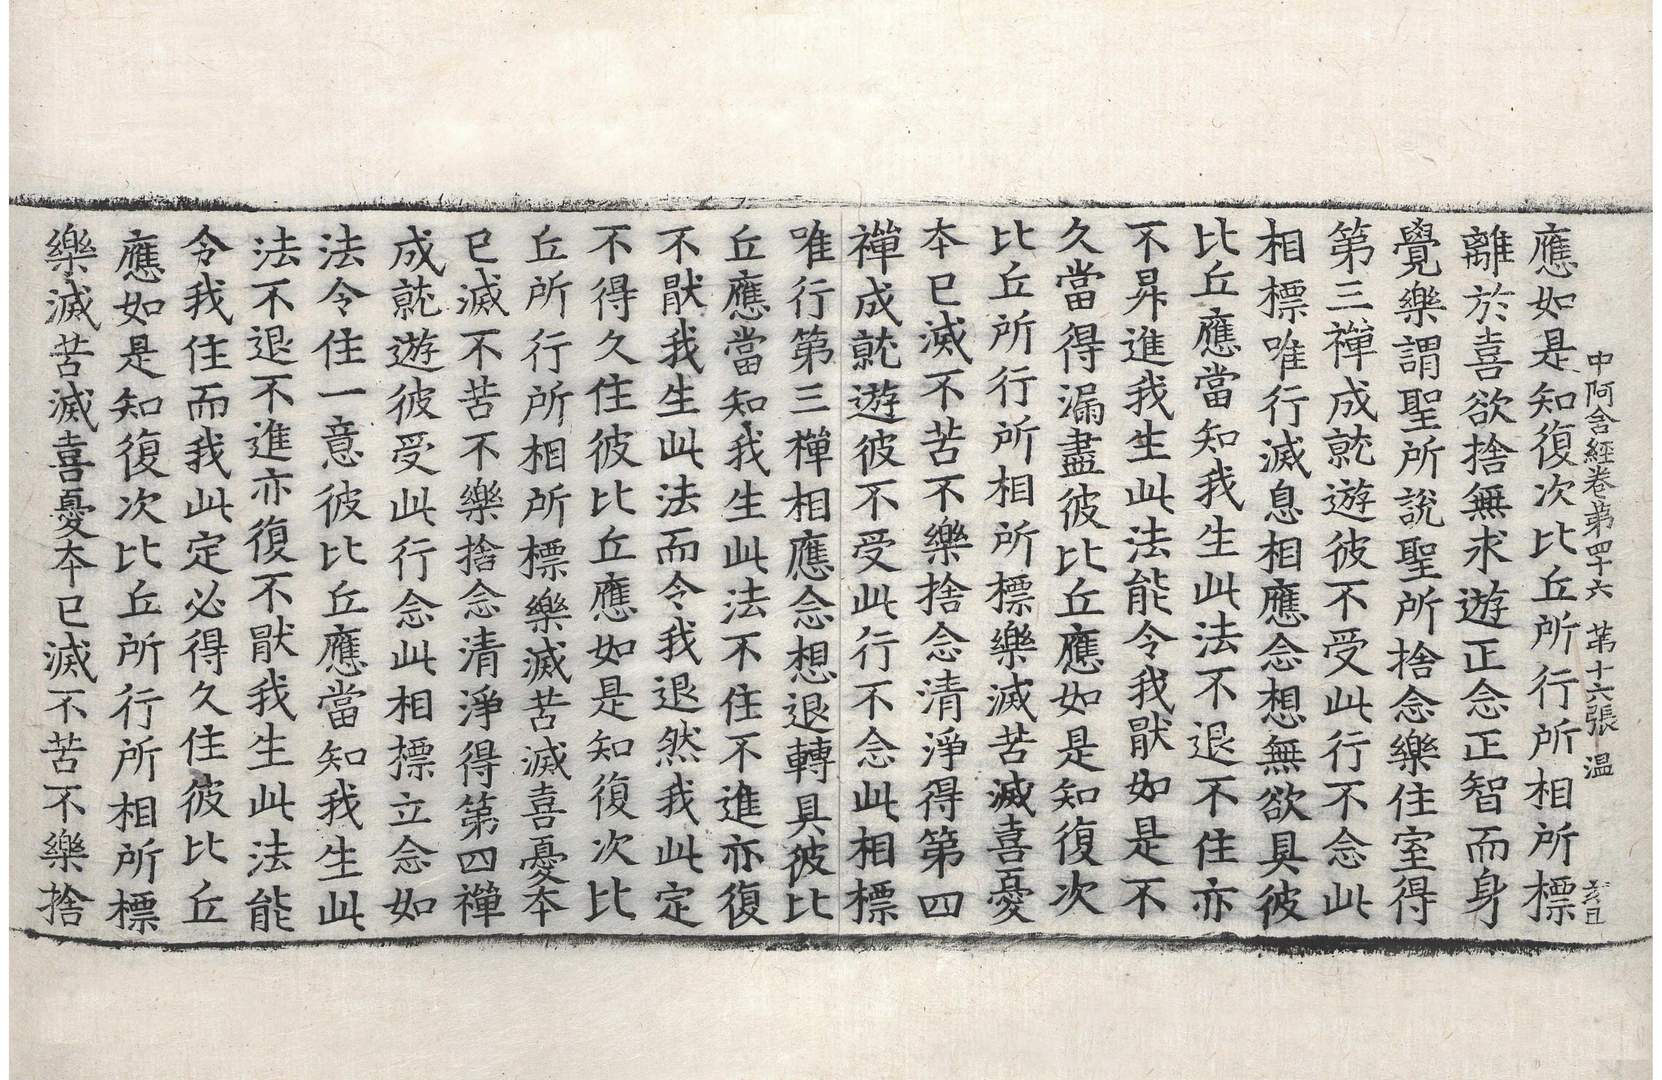 中阿含經卷第四十六 第十六張 温
應如是知復次比丘所行所相所標
離於喜欲捨無求遊正念正智而身
覺樂謂聖所說聖所捨念樂住室得
第三禪成就遊彼不受此行不念此
相標唯行滅息相應念想無欲具彼
比丘應當知我生此法不退不住亦
不昇進我生此法能令我猒如是不
久當得漏盡彼比丘應如是知復次
比丘所行所相所標樂滅苦滅喜憂
本已滅不苦不樂捨念清淨得第四
禪成就遊彼不受此行不念此相標
唯行第三禪相應念想退轉具彼比
丘應當知我生此法不住不進亦復
不猒我生此法而令我退然我此定
不得久住彼比丘應如是知復次比
丘所行所相所標樂滅苦滅喜憂本
已滅不苦不樂捨念清淨得第四禪
成就遊彼受此行念此相標立念如
法令住一意彼比丘應當知我生此
法不退不進亦復不猒我生此法能
令我住而我此定必得久住彼比丘
應如是知復次比丘所行所相所標
樂滅苦滅喜憂本已滅不苦不樂捨